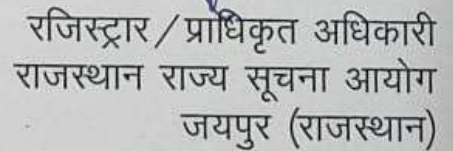 रजिस्ट्रार / प्राधिकृत अधिकारी
राजस्थान राज्य सूचना आयोग
जयपुर (राजस्थान)